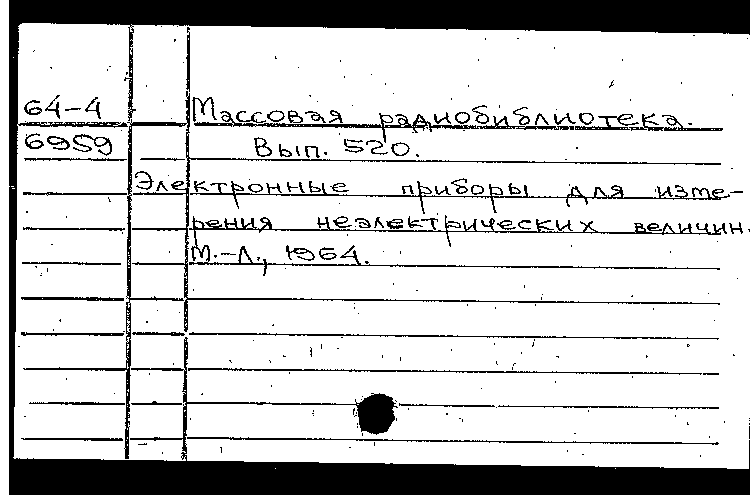 64-4 Массовая радиобиблиотека.
6959 Вып. 520.
Электронные приборы для изме-
рения неэлектрических величин.
М.-Л., 1964.